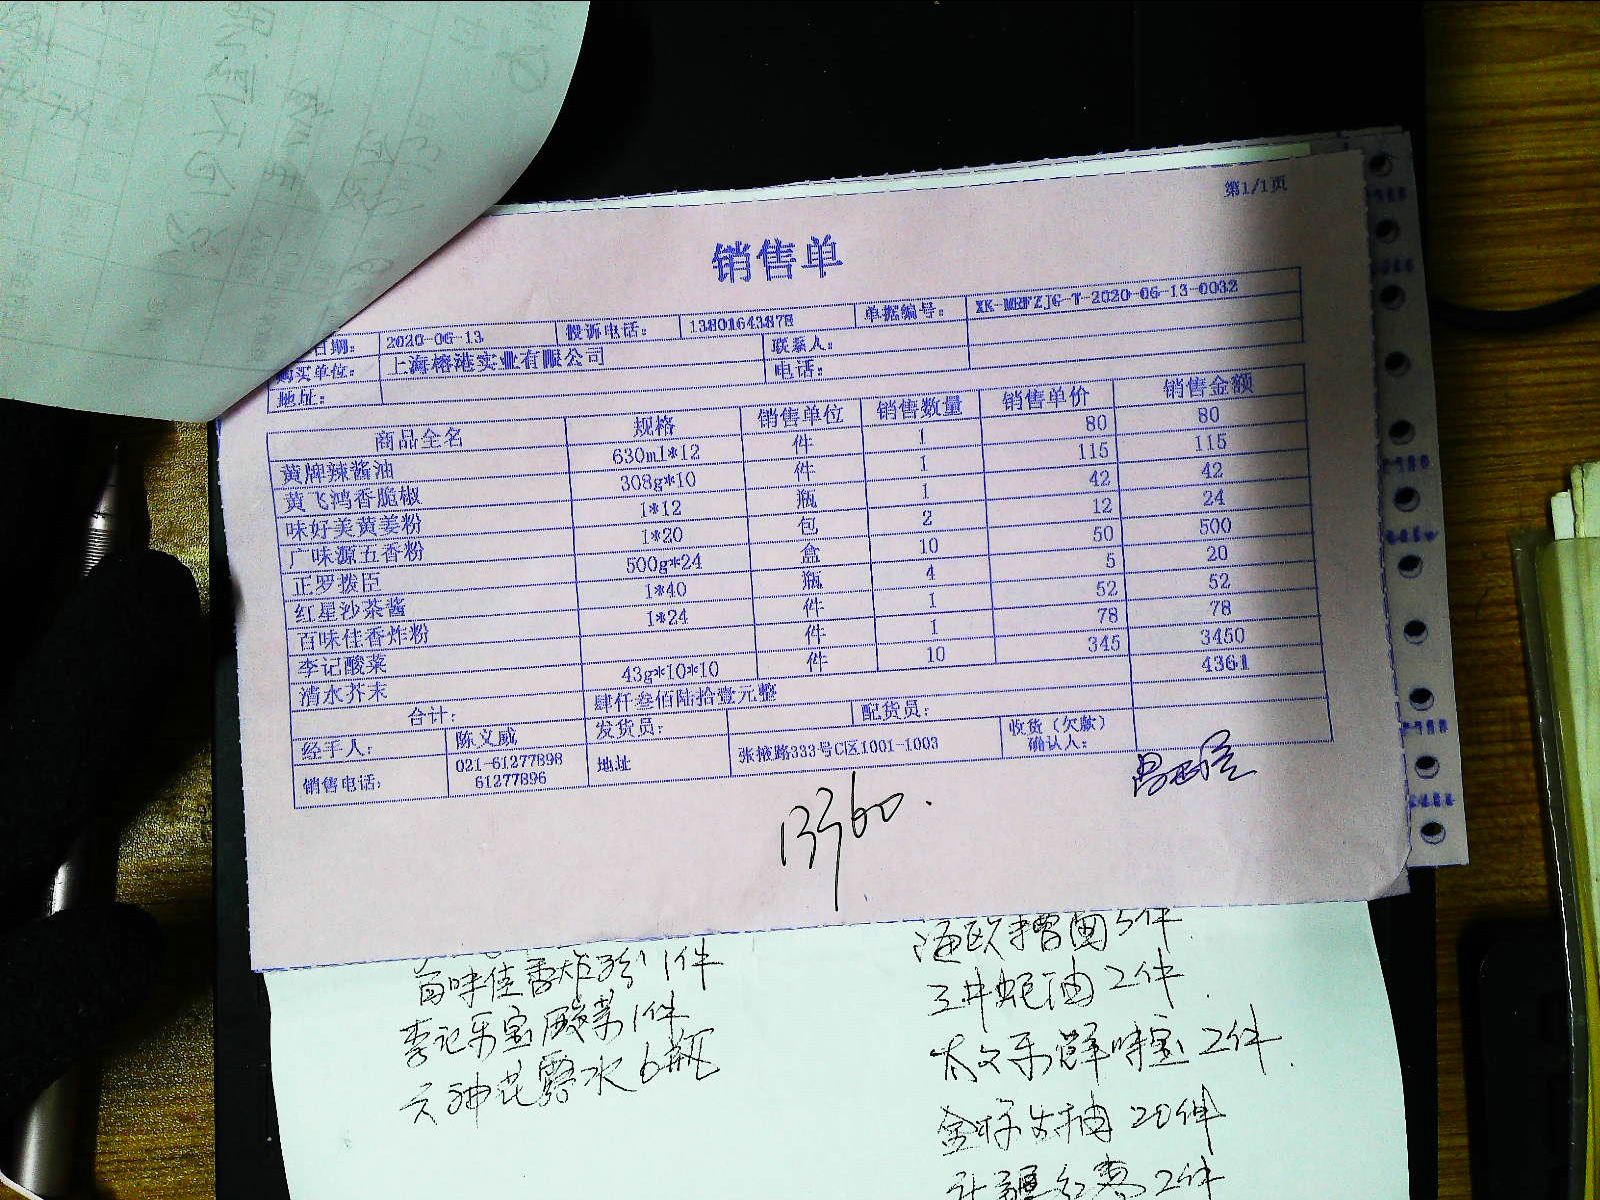 第1/1页
销售单
日期： 2020-06-13 投诉电话： 13801643878 单据编号： XK-MRFZJG-T-2020-06-13-0032
购买单位： 上海榕港实业有限公司 联系人：
地址： 电话：
商品全名 规格 销售单位 销售数量 销售单价 销售金额
黄牌辣酱油 630ml*12 件 1 80 80
黄飞鸿香脆椒 308g*10 件 1 115 115
味好美黄姜粉 1*12 瓶 1 42 42
广味源五香粉 1*20 包 2 12 24
正罗拨臣 500g*24 盒 10 50 500
红星沙茶酱 1*40 瓶 4 5 20
百味佳香炸粉 1*24 件 1 52 52
李记酸菜 件 1 78 78
清水芥末 43g*10*10 件 10 345 3450
合计： 肆仟叁佰陆拾壹元整 4361
经手人： 陈文威 发货员： 配货员：
销售电话： 021-61277898 61277896 地址 张掖路333号C区1001-1003 收货（欠款）确认人：
百味佳香炸粉 1件
李记乐宝酸菜 1件
六神花露水 6瓶
5件
三井蚝油 2件
太太乐鲜味宝 2件
金标生抽 20件
2件